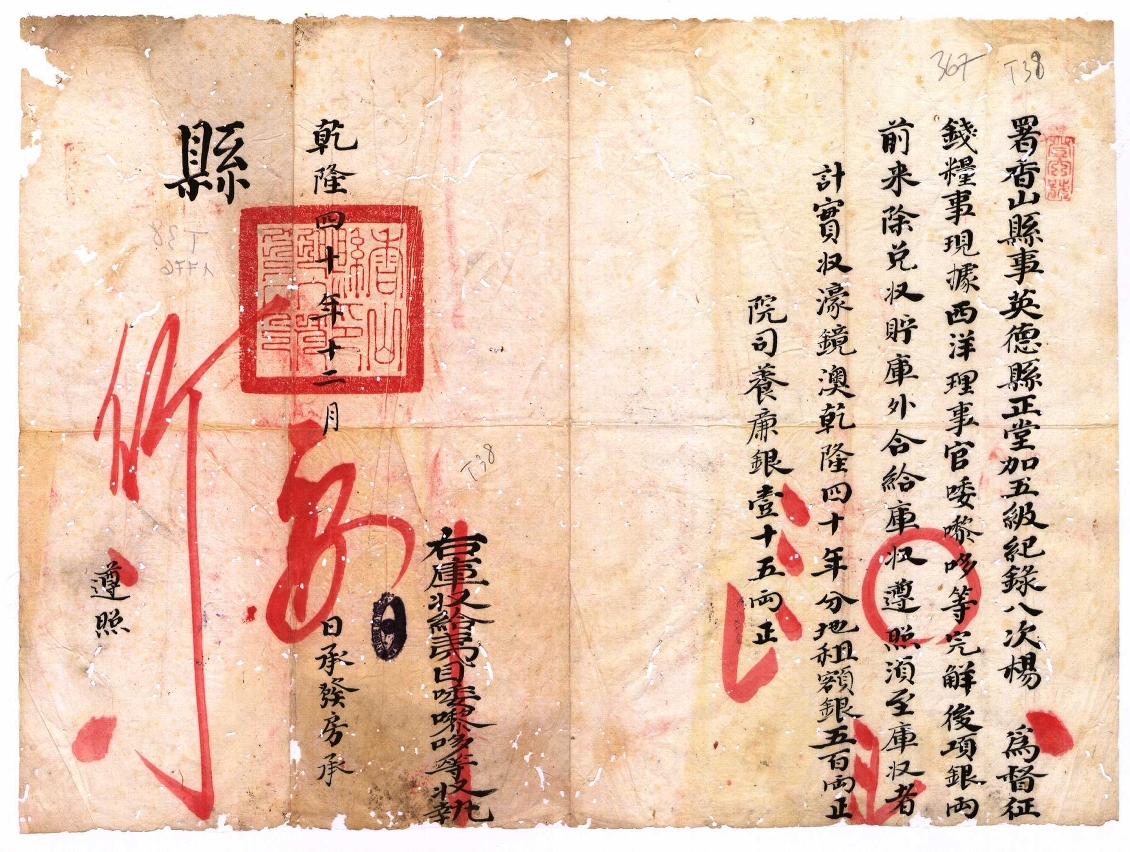 367 T38
署香山縣事英德縣正堂加五級紀錄八次楊 為督征
錢糧事現據西洋理事官㖿嚟哆等完解後項銀兩
前来除兑收貯庫外合給庫收遵照湏至庫收者
計實收濠鏡澳乾隆四十年分地租額銀五百両正
院司養廉銀壹十五両正
右庫收給夷目㖿嚟哆等收執
T38
乾隆四十年十二月 日承發房承
香山縣印
縣
T38
1776
遵照